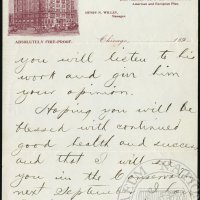 American and European Plan
HENRY N. WILLEY,
Manager.
ABSOLUTELY FIRE-PROOF.
Chicago, 189
you will listen to his
work and give him
your opinion.
Hoping you will be
blessed with continued
good health and success
and that I will see
you in the
next September. I